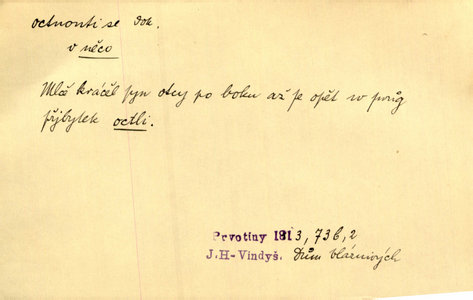 octnouti se dok.
v něco
Mlč kráčěl syn otcy po boku až se opět w swůg
přjbytek octli.
Prvotiny 1813, 736, 2
J.H-Vindyš. Dům blázniwých